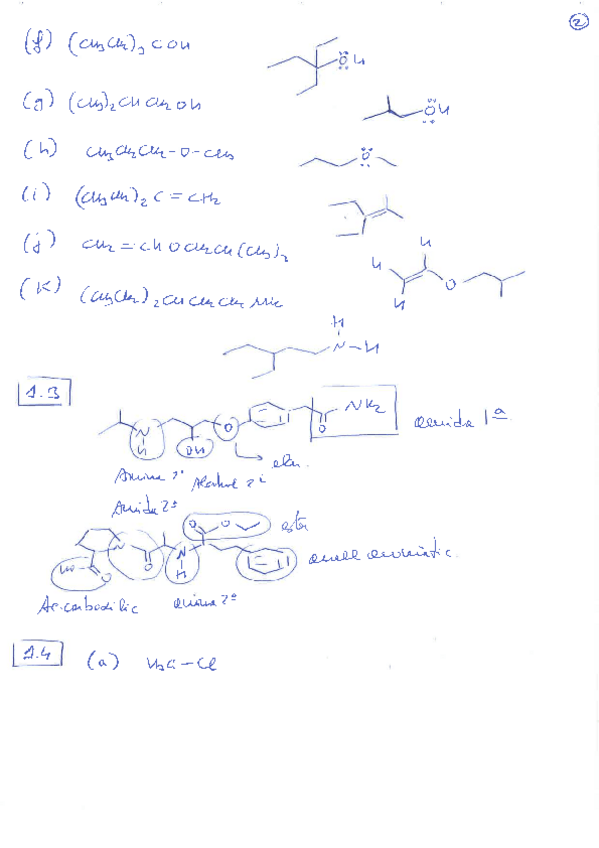 2
(f) (CH3CH2)3COH
ÖH
(g) (CH3)2CHCH2OH
ÖH
(h) CH3CH2CH2-O-CH3
O
(i) (CH3CH2)2C=CH2
(j) CH2=CHOCH2CH(CH3)2
H
H H O
(k) (CH3CH2)2CHCH2CH2NH2
H
N-H
1.3
N H OH O O NH2 amida 1ª
eter.
Amina 2ª Alcohol 2i
Amida 2ª
O O ester
N O N H HO O anell aromàtic.
Ac. carboxílic amina 2ª
1.4 (a) H3C-Cl